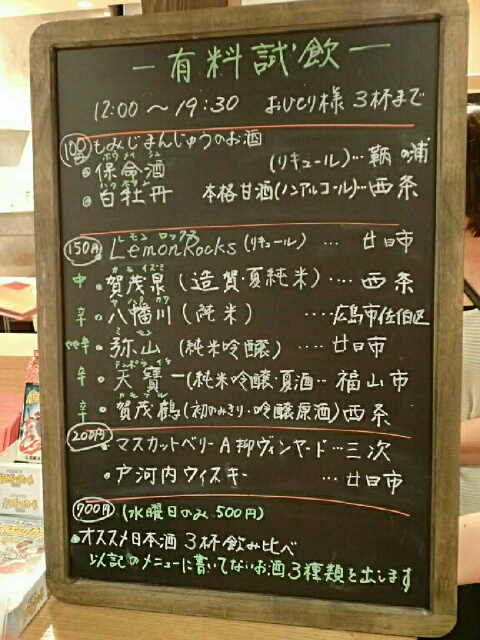 — 有料試飲 —
12:00〜19:30 おひとり様 3杯まで
100円 もみじまんじゅうのお酒
ホウメイシュ
保命酒 (リキュール)… 鞆の浦
ハクボタン
白牡丹 本格甘酒(ノンアルコール)… 西条
レモンロックス
150円 LemonRocks (リキュール) … 廿日市
カモイズミ
中 賀茂泉 (造賀・夏純米) … 西条
ヤハタガワ
辛 八幡川 (純米) ‥‥広島市佐伯区
ミセン
弥山 (純米吟醸) … 廿日市
テンポウイチ
辛 天寶一 (純米吟醸・夏酒‥ 福山市
カモツル
辛 賀茂鶴 (初しぼり・吟醸原酒) 西条
200円 マスカットベリーA 柳ヴィンヤード … 三次
戸河内ウィスキー … 廿日市
700円 (水曜日のみ 500円)
オススメ日本酒 3杯飲み比べ
以記のメニューに書いてないお酒 3種類を出します